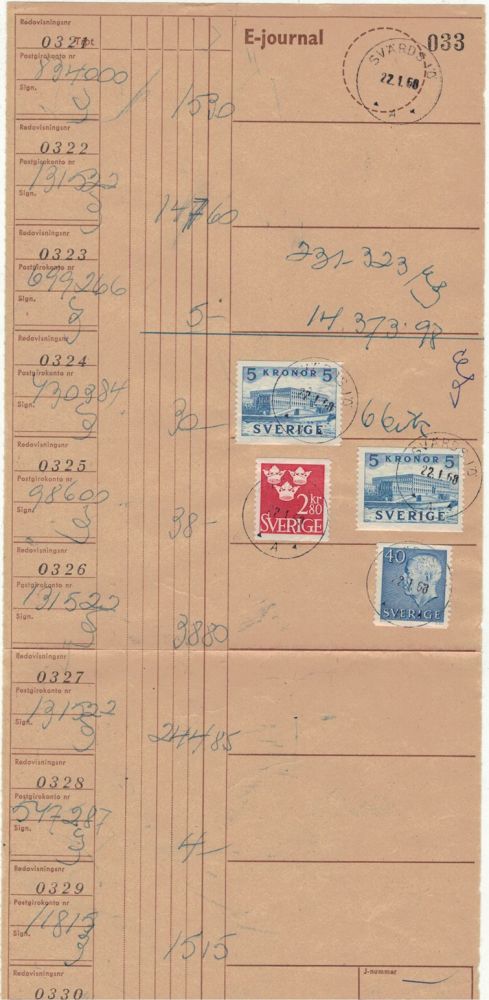 Redovisningsnr
0321
E-journal
033
Postgirokonto nr
894000
SVÄRDSJÖ
22.1.68
A
Sign.
1530
Redovisningsnr
0322
Postgirokonto nr
131522
Sign.
14760
Redovisningsnr
0323
231-323
Postgirokonto nr
699266
Sign.
5-
14.373.98
Redovisningsnr
0324
Postgirokonto nr
430384
5 KRONOR 5
SVERIGE
Sign.
30-
Redovisningsnr
0325
5 KRONOR 5
SVERIGE
SVÄRDSJÖ
22.1.68
Postgirokonto nr
98600
2 kr 80
SVERIGE
A
Sign.
38-
Redovisningsnr
0326
40
SVERIGE
Postgirokonto nr
131522
Sign.
3880
Redovisningsnr
0327
Postgirokonto nr
131522
Sign.
24485
Redovisningsnr
0328
Postgirokonto nr
547287
Sign.
4-
Redovisningsnr
0329
Postgirokonto nr
11815
Sign.
1515
Redovisningsnr
J-nummer
0330